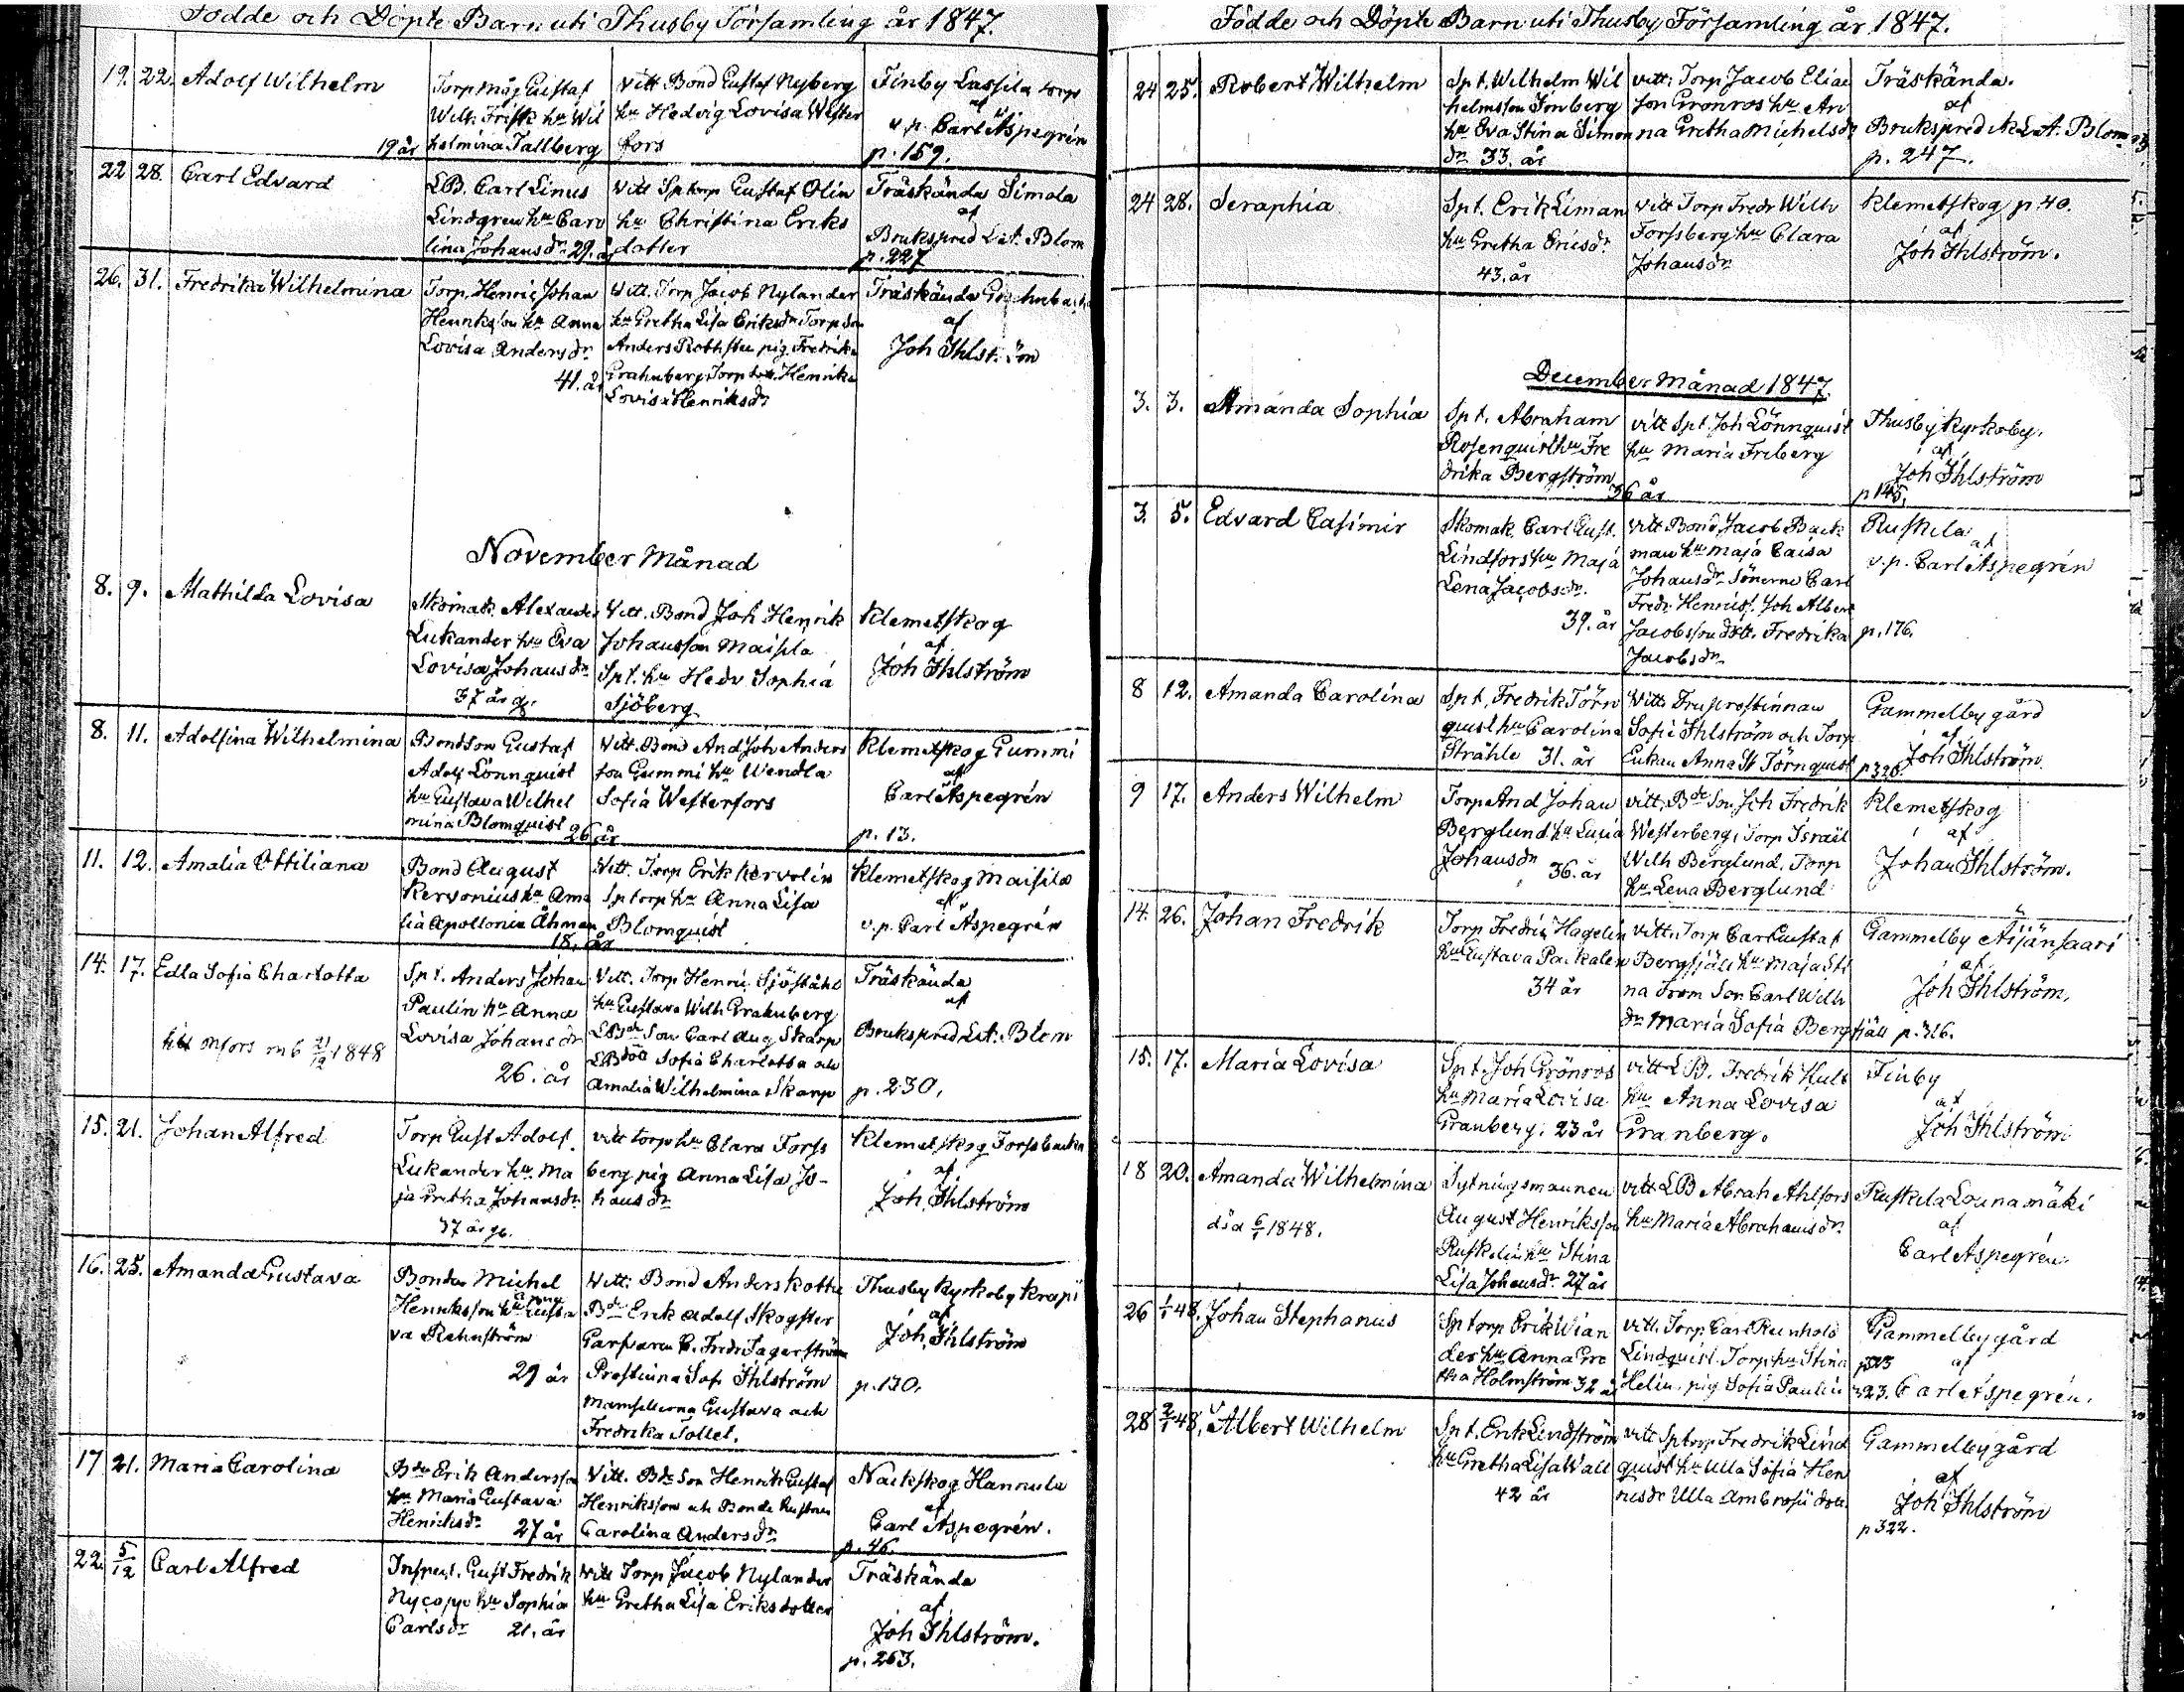 Födde och Döpte Barn uti Thusby Församling år 1847.
19. 22. Adolf Wilhelm
Torp måg Gustaf
Wilh. Frisk hu Wil
19 år helmina Tallberg
Vitt Bond Gustaf Nyberg
hu Hedvig Lovisa Wester
fors
Finby Lassila torp
af
v. p. Carl Aspegrén
p. 159.
22 28. Carl Edvard
LB. Carl Linus
Lindgren hu Caro
lina Johansdr 29. år
Vitt Sptorp Gustaf Olin
hu Christina Eriks
dotter
Träskända Simola
af
Brukspred L.A. Blom
p. 227
26. 31. Fredrika Wilhelmina
Torp. Henric Johan
Henriksson hu Anna
Lovisa Andersdr
41. år
Vitt. Torp Jacob Nylander
hu Gretha Lisa Eriksdr Torp son
Anders Rothsten pig. Fredrika
Grahnberg, Torp dott. Henrika
Lovisa Henriksdr
Träskända Grahnbacka
af
Joh Ihlström
November Månad
8. 9. Mathilda Lovisa
Skomak. Alexander
Lukander hu Eva
Lovisa Johansdr
37 år g.
Vitt. Bond Joh Henrik
Johansson Maisla
Spt. hu Hedv Sophia
Sjöberg
Klemetskog
af
Joh Ihlström
8. 11. Adolfina Wilhelmina
Bondson Gustaf
Adolf Lönnquist
hu Gustava Wilhel
mina Blomquist 26 år
Vitt. Bond And Joh Anders
son Gummi hu Wendla
Sofia Westerfors
Klemetskog Gummi
af
Carl Aspegrén
p. 13.
11. 12. Amalia Ottiliana
Bond August
Kervonius hu Ama
lia Apollonia Åhman
18. år
Vitt. Torp Erik Kervolin
Sptorp hu Anna Lisa
Blomquist
Klemetskog Maisila
af
v. p. Carl Aspegrén
14. 17. Edla Sofia Charlotta
mfors m 6 21/12 1848
Spt. Anders Johan
Paulin hu Anna
Lovisa Johansdr
26. år
Vitt. Torp Henric Sjöståhl
hu Gustava Wilh Grahnberg
LBde Son Carl Aug Skarp
LBdott Sofia Charlotta och
Amalia Wilhelmina Skarp
Träskända
af
Brukspred L.A. Blom
p. 230.
15. 21. Johan Alfred
Torp Gust Adolf.
Lukander hu Ma
ja Gretha Johansdr
37 år g.
Vitt torp hu Clara Forss
berg pig Anna Lisa Jo-
hansdr
Klemetskog Forssbacka
af
Joh Ihlström
16. 25. Amanda Gustava
Bonden Michel
Henriksson hu Anna Gusta
va Rehnström
29 år
Vitt: Bond Anders Kotte
Bde Erik Adolf Skogster
Garfvaren C. Fredr Fagerström
Prostinna Sof. Ihlström
Mamsellerna Gustava och
Fredrika Tollet.
Thusby Kyrkoby Krapi
af
Joh. Ihlström
p. 130.
17 21. Maria Carolina
Bde Erik Andersson
hu Maria Gustava
Henricsdr 27 år
Vitt. Bde Son Henrik Gustaf
Henriksson och Bonde hustrun
Carolina Andersdr
Nackskog Hannula
af
Carl Aspegrén.
p. 46.
22. 5/12 Carl Alfred
Inspect. Gust Fredrik
Nycopp hu Sophia
Carlsdr 21. år
Vitt Torp Jacob Nylander
hu Gretha Lisa Eriksdotter
Träskända
af
Joh Ihlström.
p. 263.
Födde och Döpte Barn uti Thusby Församling år 1847.
24 25. Robert Wilhelm
Spt. Wilhelm Wil
helmsson Tonberg
hu Eva Stina Simon
dr 33. år
Vitt: Torp Jacob Elias
son Gronros hu An
na Gretha Michelsdr
Träskända.
af
Brukspred L.A. Blom
p. 247.
24 28. Seraphia
Spt. Erik Liman
hu Gretha Ericsdr
43. år
Vitt Torp Fredr Wilh
Forssberg hu Clara
Johansdr
Klemetskog p. 40.
af
Joh Ihlström.
December Månad 1847.
3. 3. Amanda Sophia
Spt. Abraham
Rosenquist hu Fre
drika Bergström
36 år
Vitt Spt. Joh Lönnquist
hu Maria Friberg
Thusby Kyrkoby.
af
Joh Ihlström
p 145.
3. 5. Edvard Casimir
Skomak. Carl Gust.
Lindfors hu Maja
Lena Jacobsdr.
39. år
Vitt Bond Jacob Back
man hu Maja Caisa
Johansdr. Sönerne Carl
Fredr. Henric. Joh Albert
Jacobsson dott. Fredrika
Jacobsdr
Ruskila
af
v. p. Carl Aspegrén
p. 176.
8 12. Amanda Carolina
Spt. Fredrik Törn
quist hu Carolina
Stråhle 31. år
Vitt: Fru prostinnan
Sofie Ihlström och Torp
Enkan Anna St Törnquist
Gammelby gård
af
Joh Ihlström
p 320.
9 17. Anders Wilhelm
Torp And Johan
Berglund hu Lucia
Johansdr
36. år
Vitt. Bde Son Joh Fredrik
Westerberg, Torp Israel
Wilh Berglund, Torp
hu Lena Berglund
Klemetskog
af
Johan Ihlström.
14. 26. Johan Fredrik
Torp Fredric Hagelin
hu Gustava Packalen
34 år
Vitt. Torp Carl Gustaf
Bergfjäll hu Maja Sti
na From Son Carl Wilh
dr Maria Sofia Bergfjäll p. 316.
Gammelby Äijänsaari
af
Joh Ihlström.
15. 17. Maria Lovisa
Spt. Joh Grönros
hu Maria Lovisa
Granberg. 23 år
Vitt LB. Fredrik Hult
hu Anna Lovisa
Granberg.
Finby
af
Joh Ihlström
18 20. Amanda Wilhelmina
död 6/1 1848.
Sytningsmannen
August Henriksson
Ruskelin hu Stina
Lisa Johansdr 27 år
Vitt LB Abrah Ahlfors
hu Maria Abrahamsdr.
Ruskila Lounamäki
af
Carl Aspegrén
26 1/1 48. Johan Stephanus
Sptorp Erik Wian
der hu Anna Gre
tha Holmström 32 år
Vitt. Torp. Carl Reinhold
Lindquist. Torp hu Stina
Helin, pig Sofia Paulin
Gammelby gård
p323 af
323. Carl Aspegrén.
28 2/1 48. Albert Wilhelm
Spt. Erik Lindström
hu Gretha Lisa Wall
42 år
Vitt Sptorp Fredrik Lind
quist hu Ulla Sofia Hen
ricsdr Ulla Ambrosii dott.
Gammelby gård
af
Joh Ihlström
p 322.